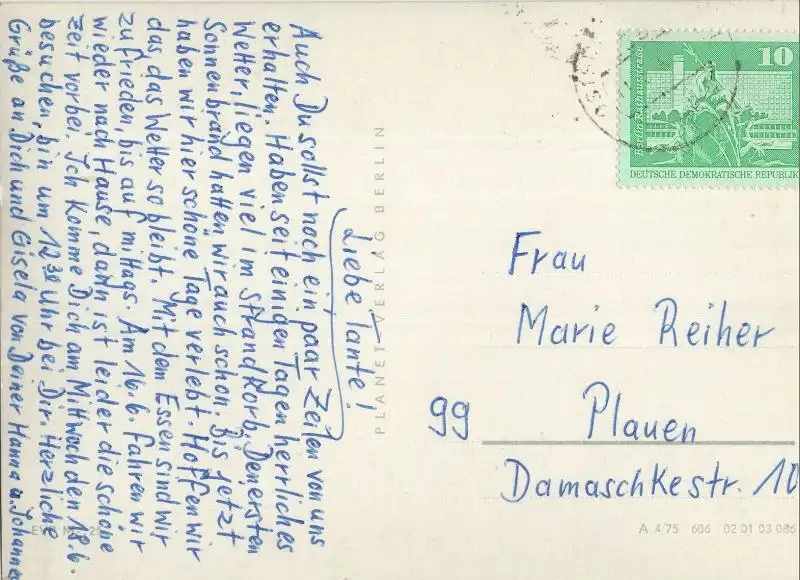 Liebe Tante!
Auch Du sollst noch ein paar Zeilen von uns
erhalten. Haben seit einigen Tagen herrliches
Wetter, liegen viel im Strandkorb. Den ersten
Sonnenbrand hatten wir auch schon. Bis jetzt
haben wir hier schöne Tage verlebt. Hoffen wir
das das Wetter so bleibt. Mit dem Essen sind wir
zufrieden, bis auf mittags. Am 16.6. fahren wir
wieder nach Hause, dann ist leider die schöne
Zeit vorbei. Ich komme Dich am Mittwoch den 18.6.
besuchen, bin um 12 30 Uhr bei Dir. Herzliche
Grüße an Dich und Gisela von Deiner Hanna u. Johannes
PLANET-VERLAG BERLIN
10
Berlin, Rathausstraße
DEUTSCHE DEMOKRATISCHE REPUBLIK
Frau
Marie Reiher
99 Plauen
Damaschkestr. 10
EVP M
A 4 75 606 02 01 03 086